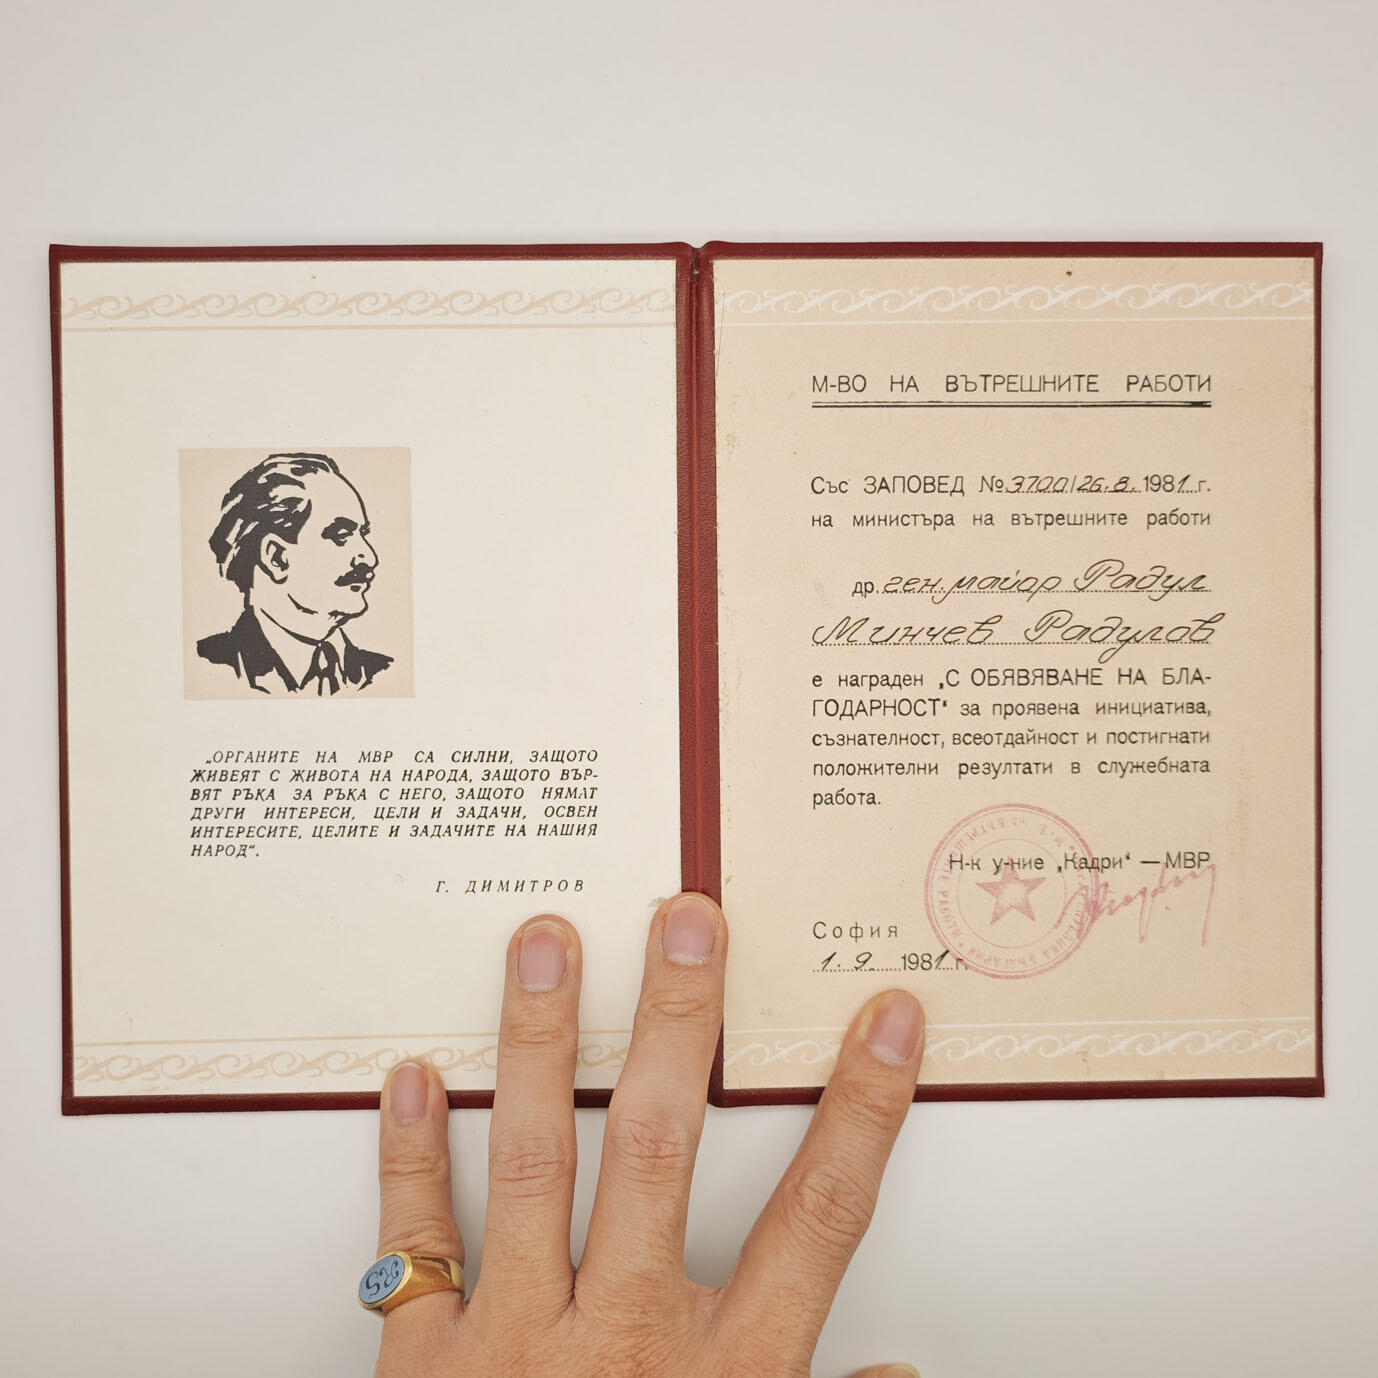 „ОРГАНИТЕ НА МВР СА СИЛНИ, ЗАЩОТО
ЖИВЕЯТ С ЖИВОТА НА НАРОДА, ЗАЩОТО ВЪР-
ВЯТ РЪКА ЗА РЪКА С НЕГО, ЗАЩОТО НЯМАТ
ДРУГИ ИНТЕРЕСИ, ЦЕЛИ И ЗАДАЧИ, ОСВЕН
ИНТЕРЕСИТЕ, ЦЕЛИТЕ И ЗАДАЧИТЕ НА НАШИЯ
НАРОД“.
Г. ДИМИТРОВ
М-ВО НА ВЪТРЕШНИТЕ РАБОТИ
Със ЗАПОВЕД № 3700/26.8.1981 г.
на министъра на вътрешните работи
др. ген. майор Радул
Минчев Радулов
е награден „С ОБЯВЯВАНЕ НА БЛА-
ГОДАРНОСТ“ за проявена инициатива,
съзнателност, всеотдайност и постигнати
положителни резултати в служебната
работа.
Н-к у-ние „Кадри“ — МВР
София
1.9. 1981 г.